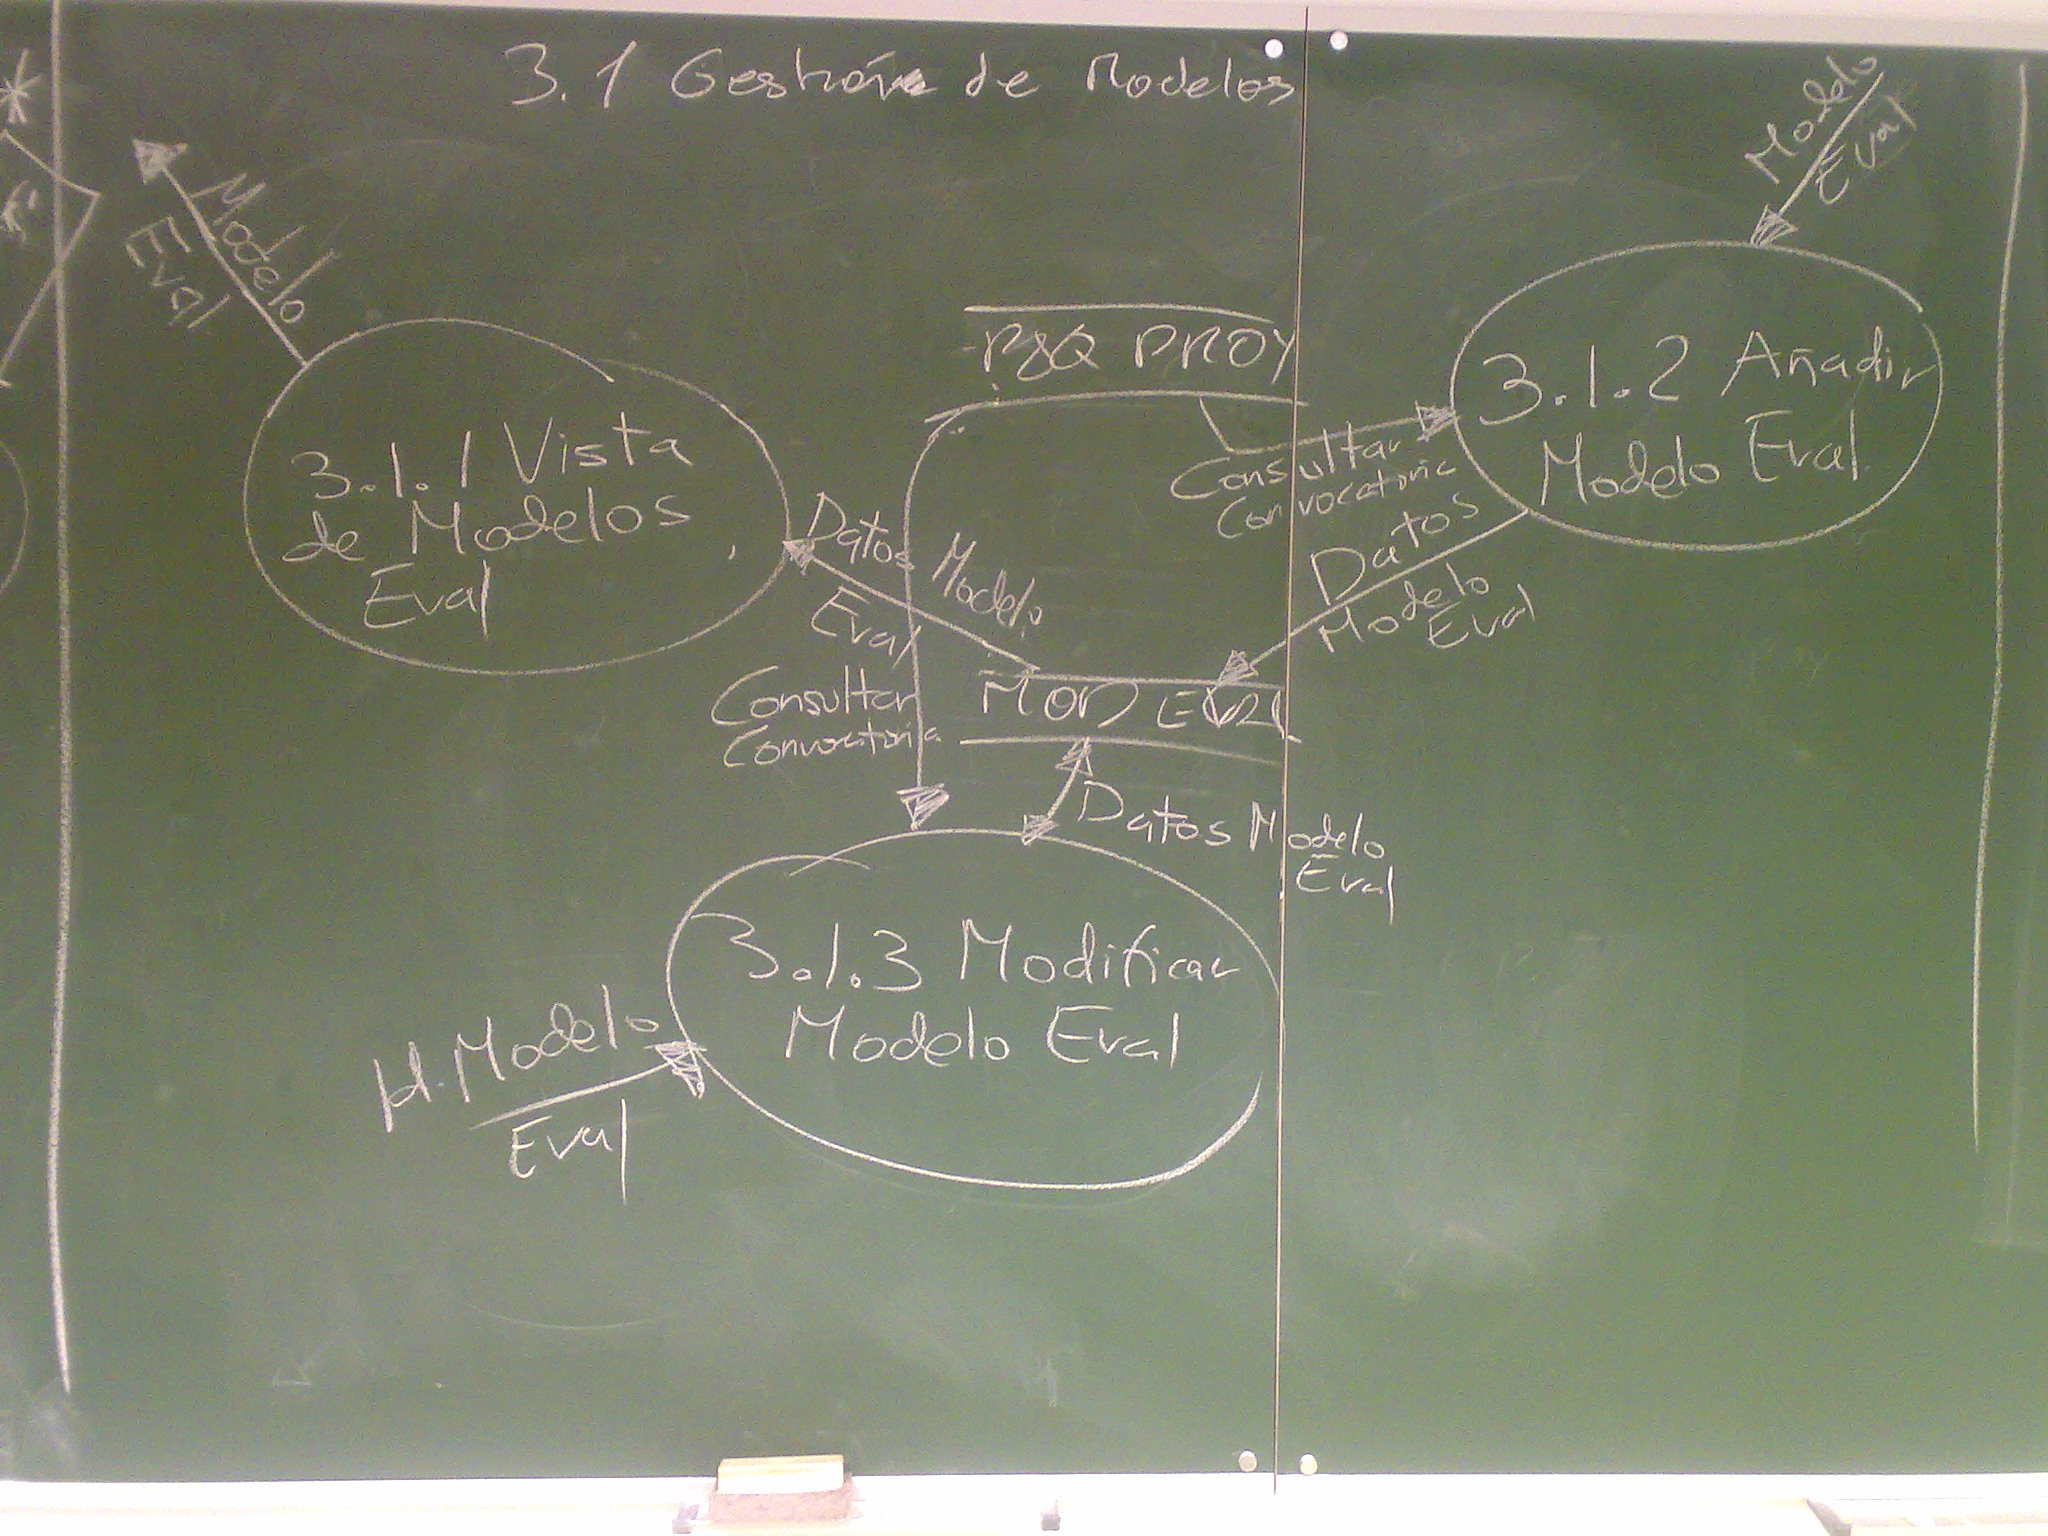 3.1 Gestión de Modelos
Modelo
Eval
Modelo
Eval
PROY
3.1.2 Añadir
Modelo Eval.
3.1.1 Vista
de Modelos
Eval
Consultar
Convocatoria
Datos Modelo
Eval
Datos
Modelo
Eval
Consultar
Convocatoria
MOD EVAL
Datos Modelo
Eval
3.1.3 Modificar
Modelo Eval
Id.Modelo
Eval